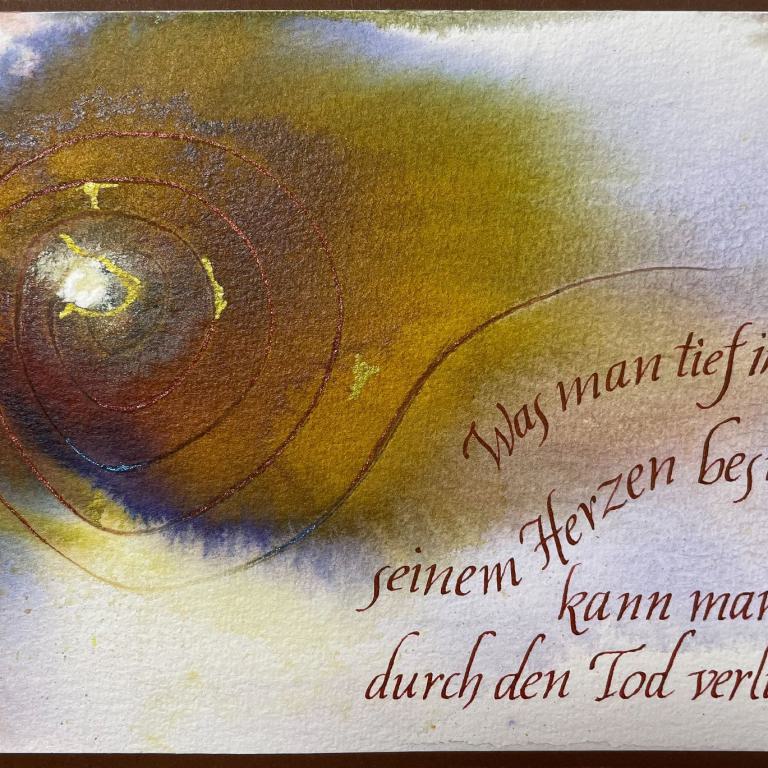 Was man tief i
seinem Herzen bes
kann man
durch den Tod verli